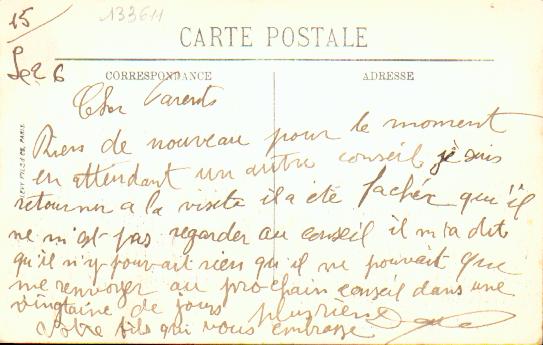 15
13364
CARTE POSTALE
CORRESPONDANCE
ADRESSE
Cher Parents
Riens de nouveau pour le moment
en attendant un autre conseil je suis
retourner a la visite il a été facher qu'il
ne m'est pas regarder au conseil il m'a dite
qu'il n'y pouvait rien qu'il ne pouvait que
me renvoyer au prochain conseil dans une
vingtaine de jours plus rien
Votre fils qui vous embrasse